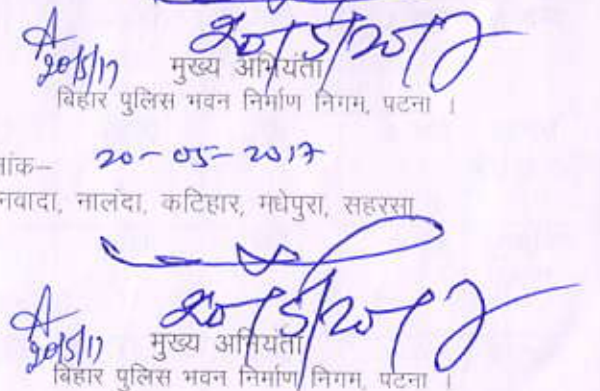 20/5/2017
20/5/17 मुख्य अभियंता
बिहार पुलिस भवन निर्माण निगम, पटना ।
नांक– 20-05-2017
नवादा, नालंदा, कटिहार, मधेपुरा, सहरसा
20/5/2017
20/5/17 मुख्य अभियंता
बिहार पुलिस भवन निर्माण निगम, पटना ।